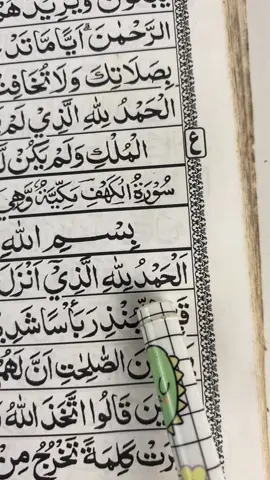 الرَّحْمٰنَ ؕ اَيًّا مَّا تَدْ
بِصَلَاتِكَ وَلَا تُخَافِتْ
الْحَمْدُ لِلّٰهِ الَّذِيْ لَمْ
الْمُلْكِ وَلَمْ يَكُنْ لَّ
ع
سُوْرَةُ الْكَهْفِ مَكِّيَّةٌ وَّهِيَ
بِسْمِ اللّٰهِ
اَلْحَمْدُ لِلّٰهِ الَّذِيْٓ اَنْزَلَ
بَاْسًا شَدِيْ
الصّٰلِحٰتِ اَنَّ لَهُمْ
قَالُوا اتَّخَذَ اللّٰهُ
كَلِمَةً تَخْرُجُ مِنْ